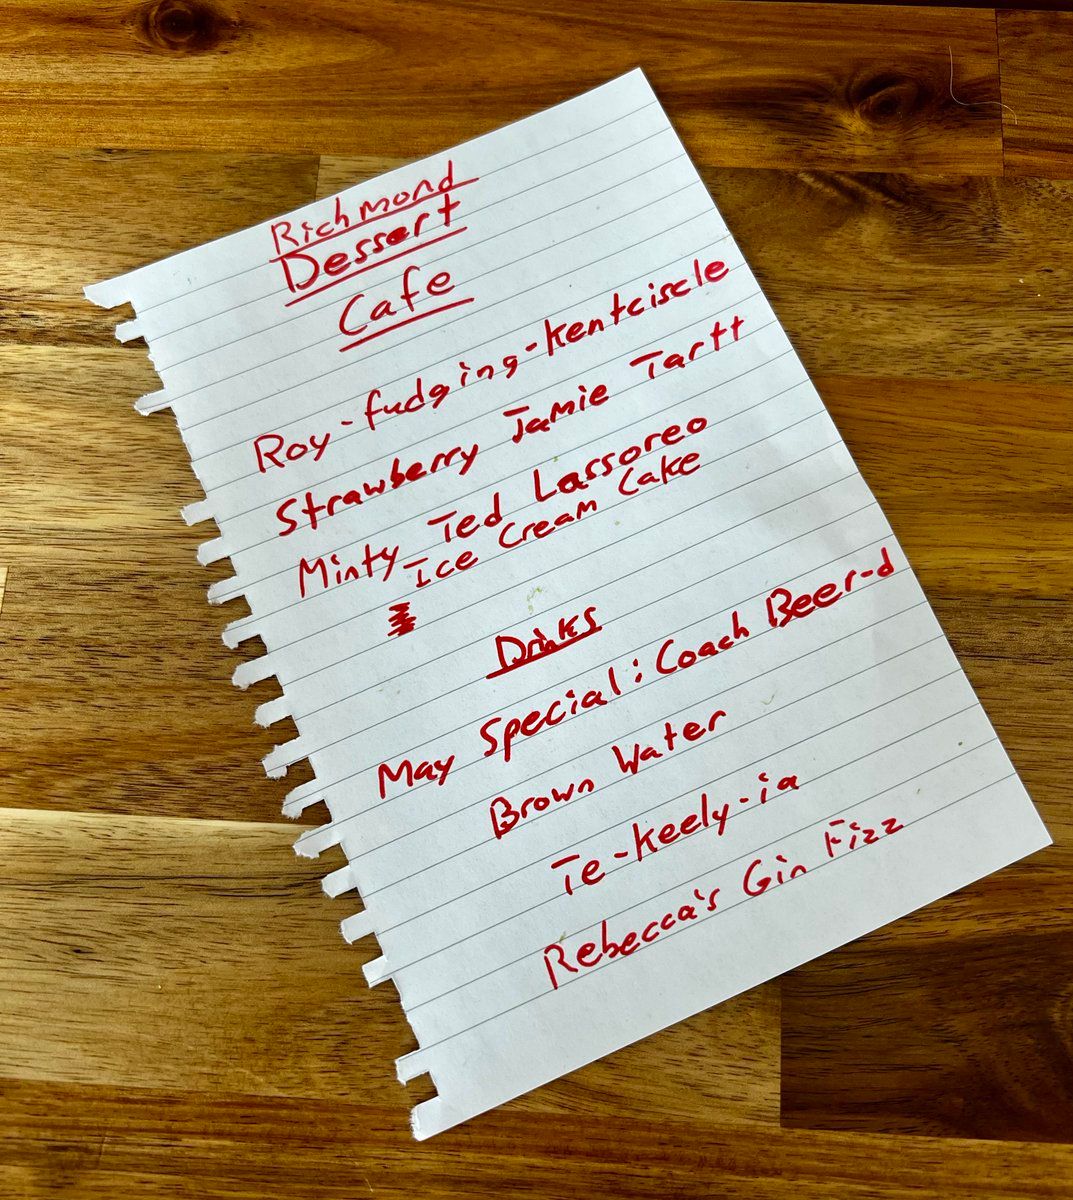 Richmond
Dessert
Cafe
Roy-fudging-Kentciscle
Strawberry Jamie Tartt
Minty Ted Lassoreo
Ice Cream Cake
Drinks
May Special: Coach Beer-d
Brown Water
Te-Keely-ia
Rebecca's Gin Fizz